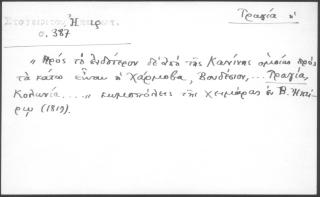 Τραγία ἡ
Ἠπειρ.
σ. 387
" Πρὸς τὸ ἐνδότερον δὲ ἀπὸ τῆς Κανίνης ὁμοίως πρὸς
τὰ κάτω εἶναι ἡ Χάρμοβα, Βουδέσιον, ... Τραγία,
Κολωνία, ... " κωμοπόλεις τῆς Χειμάρας ἐν Β. Ἠπεί-
ρῳ (1819).